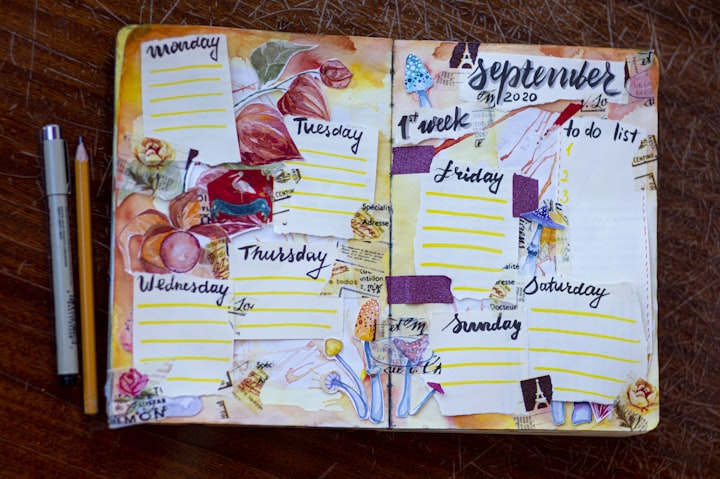 Monday
Tuesday
Wednesday
Thursday
september
2020
1st week
to do list
1
2
3
Friday
Saturday
Sunday
Spécialité
Adresse
Docteur